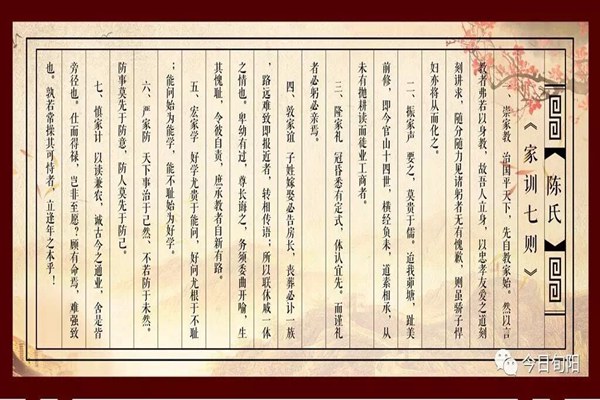 【陈氏】
《家训七则》
一、崇家教 治国平天下，先自教家始。然以言
教者弗若以身教，故吾人立身，以忠孝友爱之道刻
刻讲求，随分随力见诸躬者无有愧歉，则虽骄子悍
妇亦将从而化之。
二、振家声 要之，莫贵于儒。迨我茆塘，趾美
前修，即今官山十四世，横经负耒，道素相承，从
未有抛耕读而徒业工商者。
三、隆家礼 冠昏悉有定式，体认宜先，而谨礼
者必躬必亲焉。
四、敦家谊 子姓嫁娶必告房长，丧葬必讣一族
，路远难致即报近者，转相传语；所以联休戚一体
之情也。卑幼有过，尊长诲之，务须委曲开喻，生
其愧耻，令彼自责，庶承教者自新有路。
五、宏家学 好学尤贵于能问，好问尤根于不耻
；能问始为能学，能不耻始为好学。
六、严家防 天下事治于已然、不若防于未然。
防事莫先于防意，防人莫先于防己。
七、慎家计 以读兼农，诚古今之通业，舍是皆
旁径也。仕而得禄，岂非至愿？顾有命焉，难强致
也。孰若常操其可恃者，立逢年之本乎！
今日旬阳